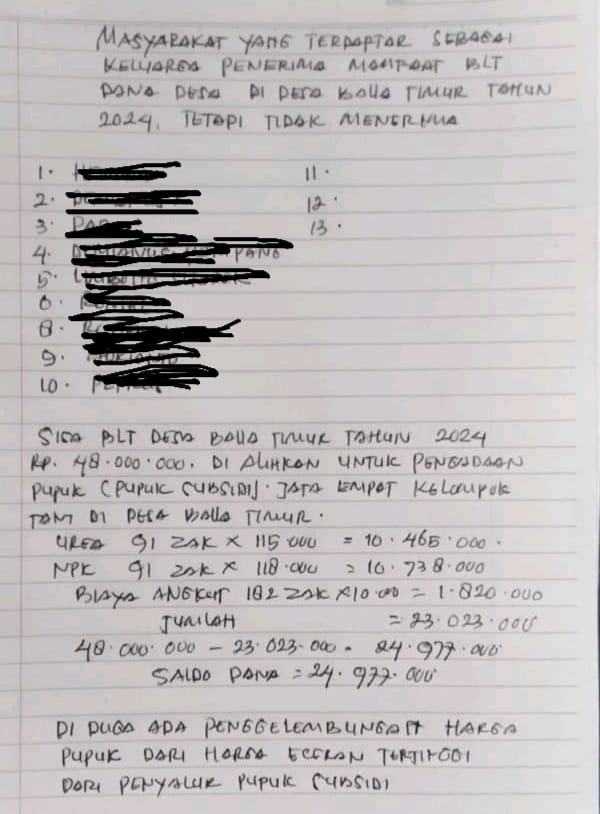 MASYARAKAT YANG TERDAPTAR SEBAGAI
KELUARGA PENERIMA MAMPAAT BLT
DANA DESA DI DESA BALLA TIMUR TAHUN
2024, TETAPI TIDAK MENERIMA
1.
2.
3.
4.
5.
6.
8.
9.
10.
11.
12.
13.
SISA BLT DESA BALLA TIMUR TAHUN 2024
RP. 48.000.000. DI ALIHKAN UNTUK PENGADAAN
PUPUK (PUPUK SUBSIDI). JATA EMPAT KELOMPOK
TANI DI DESA BALLA TIMUR.
UREA 91 ZAK X 115.000 = 10.465.000.
NPK 91 ZAK X 118.000 = 10.738.000
BIAYA ANGKUT 182 ZAK X10.000 = 1.820.000
JUMLAH = 23.023.000
48.000.000 - 23.023.000 = 24.977.000
SALDO DANA = 24.977.000
DI DUGA ADA PENGGELEMBUNGAN HARGA
PUPUK DARI HARGA ECERAN TERTINGGI
DARI PENYALUR PUPUK SUBSIDI